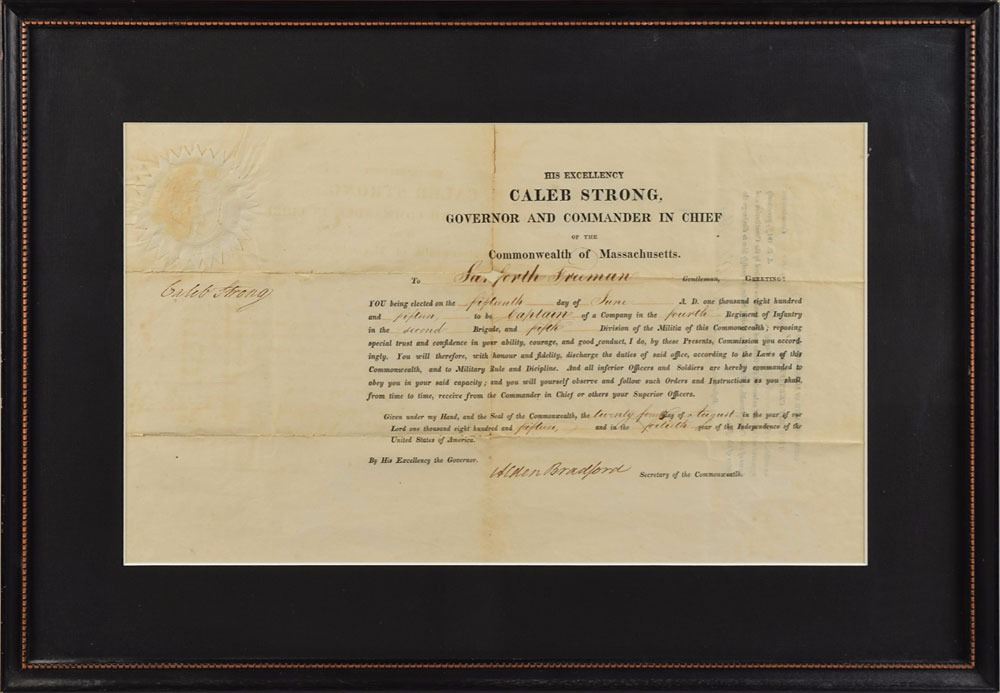 HIS EXCELLENCY
CALEB STRONG,
GOVERNOR AND COMMANDER IN CHIEF
OF THE
Commonwealth of Massachusetts.
To Freeman Gentleman, GREETING:
Caleb Strong
YOU being elected on the fifteenth day of June A. D. one thousand eight hundred
and fifteen to be Captain of a Company in the fourth Regiment of Infantry
in the second Brigade, and fifth Division of the Militia of this Commonwealth; reposing
special trust and confidence in your ability, courage, and good conduct, I do, by these Presents, Commission you accord-
ingly. You will therefore, with honour and fidelity, discharge the duties of said office, according to the Laws of this
Commonwealth, and to Military Rule and Dicipline. And all inferior Officers and Soldiers are hereby commanded to
obey you in your said capacity; and you will yourself observe and follow such Orders and Instructions as you shall,
from time to time, receive from the Commander in Chief or others your Superior Officers.
Given under my Hand, and the Seal of the Commonwealth, the twenty four day of August in the year of our
Lord one thousand eight hundred and fifteen, and in the fortieth year of the Independence of the
United States of America.
By His Excellency the Governor.
Alden Bradford Secretary of the Commonwealth.